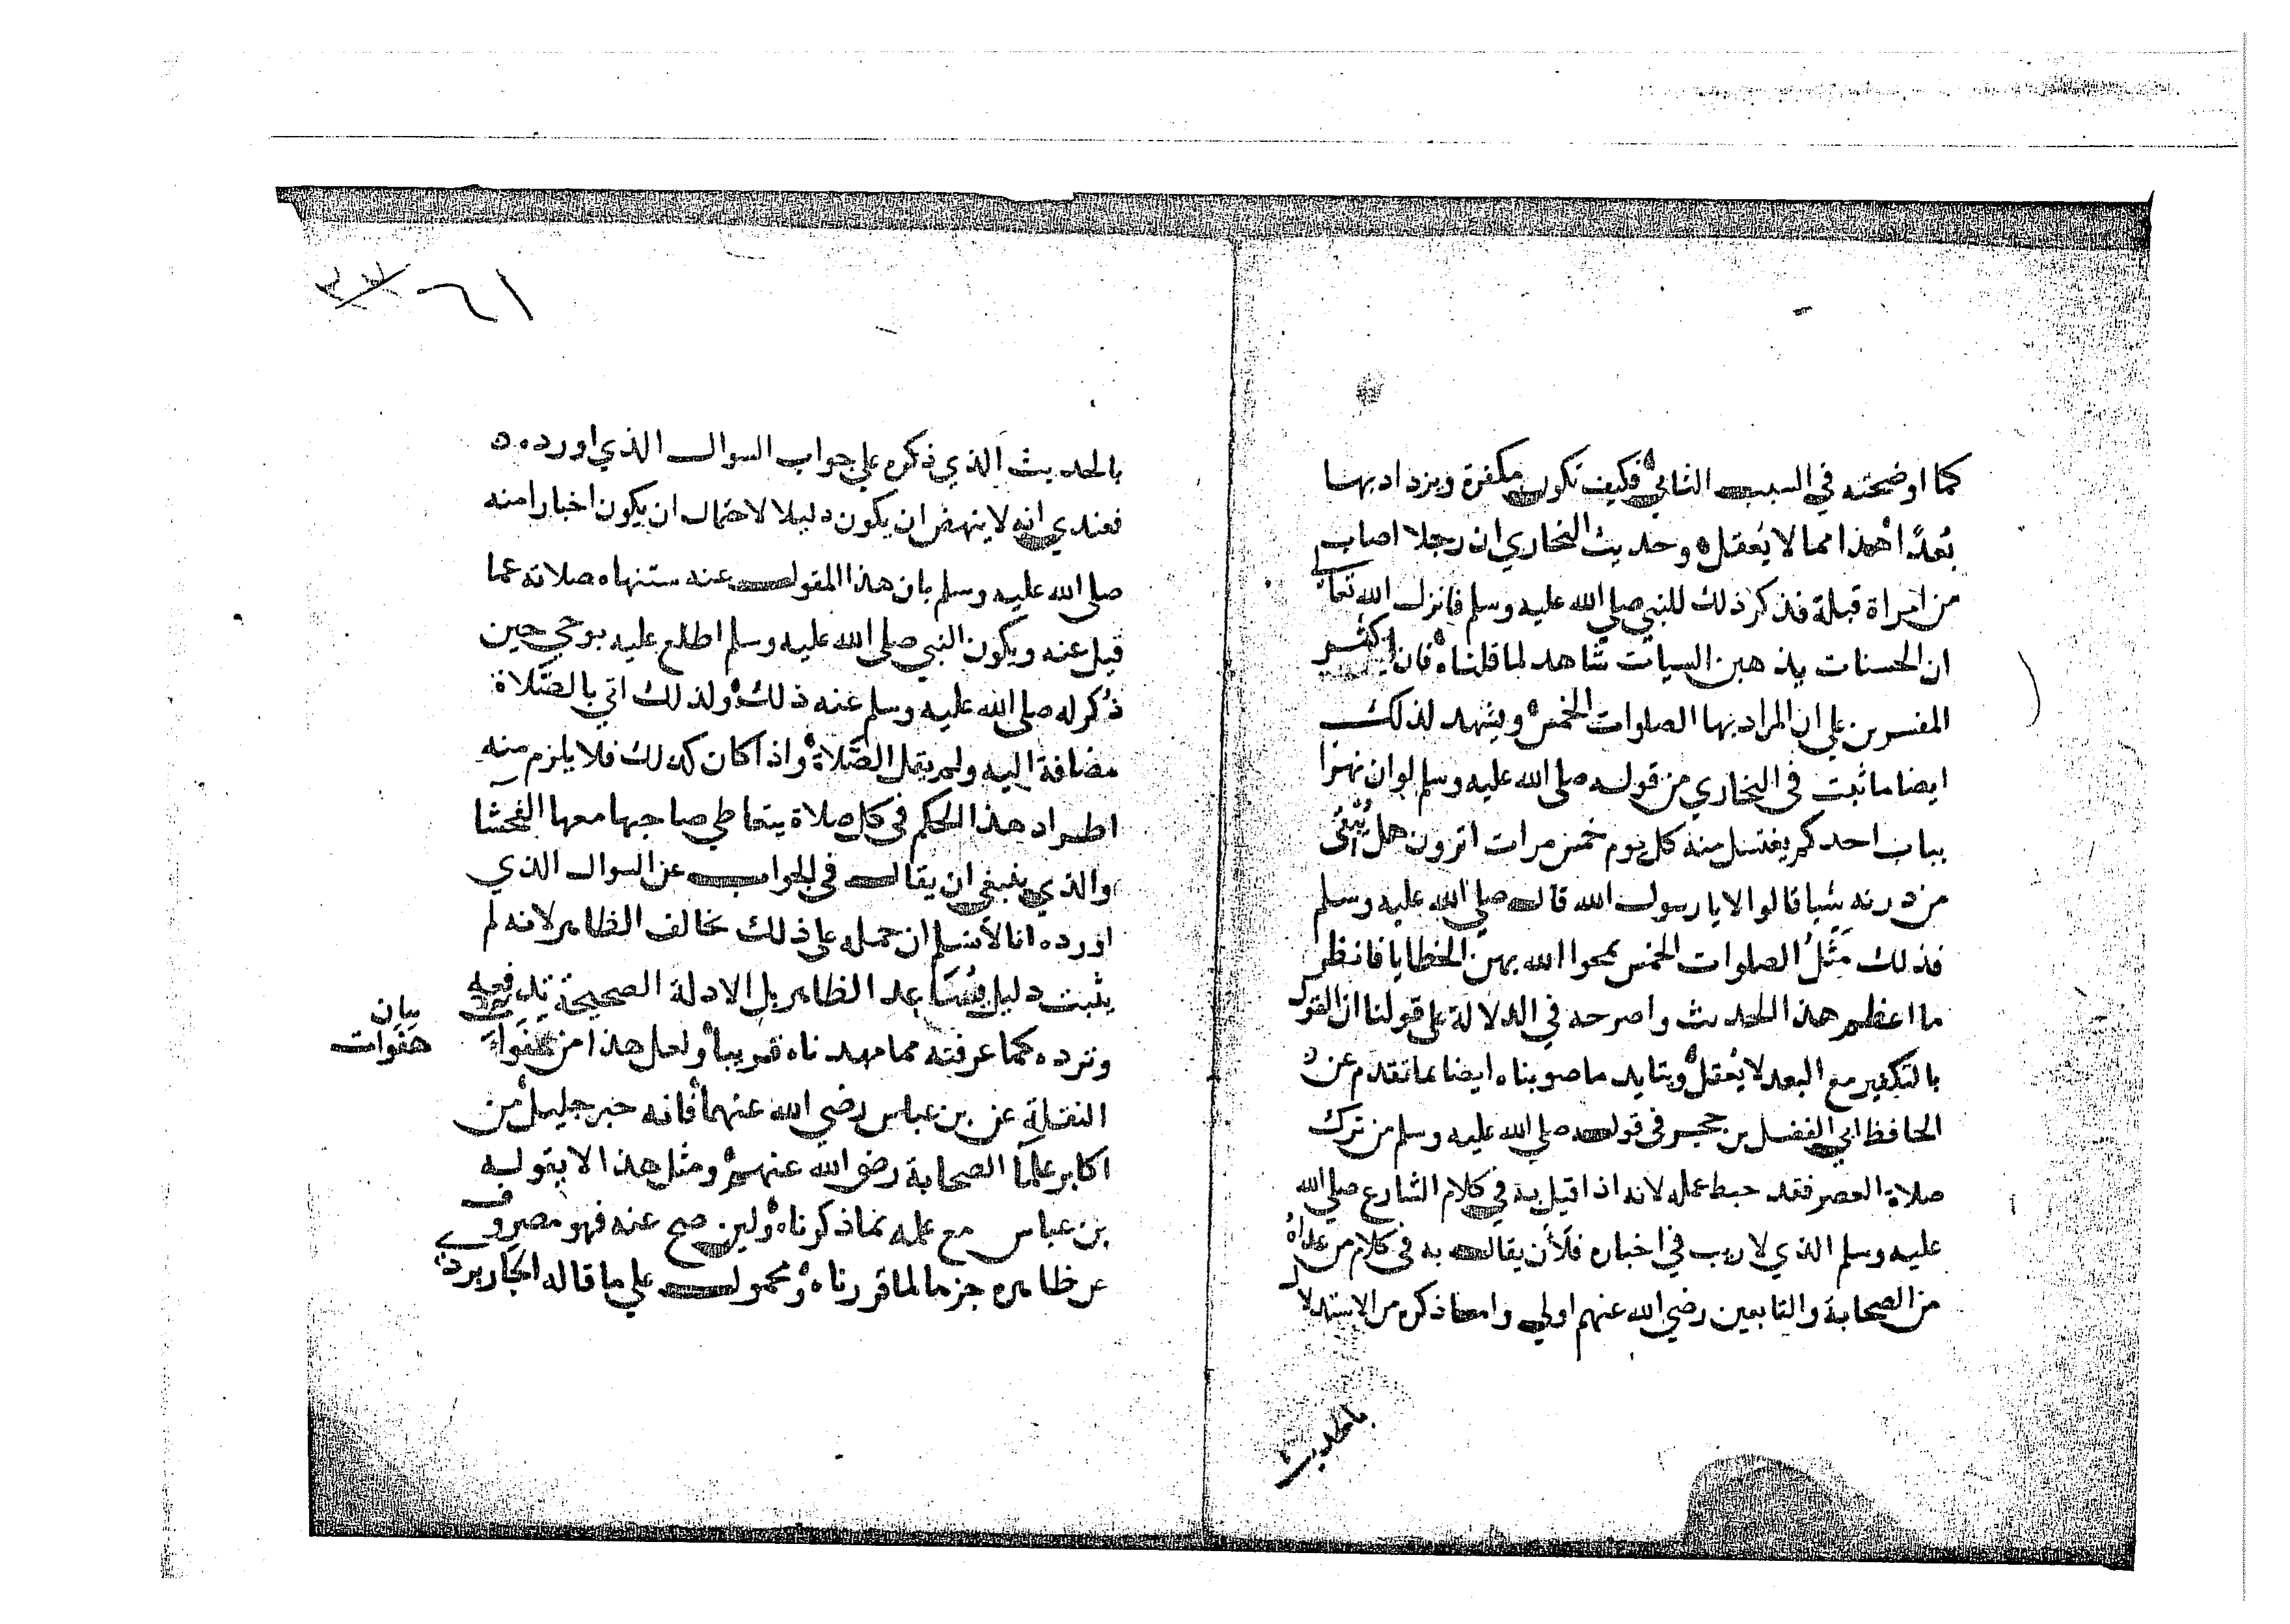 كما اوضحته في السبب الثاني فكيف تكون مكفرة ويزداد بها
بُعدًا هذا مما لا يُعقل وحديث البخاري ان رجلا اصاب
من امراة قبلة فذكر ذلك للنبي صلي الله عليه وسلم فانزل الله تعالي
ان الحسنات يذهبن السيات شاهد لما قلناه فان اكثر
المفسرين علي ان المراد بها الصلوات الخمس ويشهد لذلك
ايضا ما ثبت في البخاري من قوله صلي الله عليه وسلم لو ان نهرا
بباب احدكم يغتسل منه كل يوم خمس مرات اترون هل يُبْقي
من درنه شيا قالوا لا يا رسول الله قال صلي الله عليه وسلم
فذلك مَثَلُ الصلوات الخمس يمحوا الله بهن الخطايا فانظر
ما اعظم هذا الحديث واصرحه في الدلالة علي قولنا ان القول
بالتكفير مع البعد لا يُعقل ويتايد ما صوبناه ايضا بما تقدم عن
الحافظ ابي الفضل بن حجر في قوله صلي الله عليه وسلم من ترك
صلاة العصر فقد حبط عمله لانه اذا قيل به في كلام الشارع صلي الله
عليه وسلم الذي لا ريب في اخباره فَلَأَن يقال به في كلام من عداهُ
من الصحابة والتابعين رضي الله عنهم اولي واما ما ذكره من الاستدلال
بالحديث
٦١
بالحديث الذي ذكره علي جواب السوال الذي اورده
فعندي انه لا ينهض ان يكون دليلا لاحتمال ان يكون اخبارا منه
صلي الله عليه وسلم بان هذا المقول عنه ستنهاه صلاته عما
قيل عنه ويكون النبي صلي الله عليه وسلم اطلع عليه بوحي حين
ذُكر له صلي الله عليه وسلم عنه ذلك ولذلك اتي بالصَّلاة
مضافة اليه ولم يقل الصَّلاة واذا كان كذلك فلا يلزم منه
اطراد هذا الحكم في كل صلاة يتعاطي صاحبها معها الفحشا
والذي ينبغي ان يقال في الجواب عن السوال الذي
اورده انا لا نسلم ان حمله علي ذلك خالف الظاهر لانه لم
يثبت دليل يساعد الظاهر بل الادلة الصحيحة تدفعه
وترده كما عرفته مما مهدناه قريبا ولعل هذا من هفوات
بيان
هفوات
النقلة عن بن عباس رضي الله عنهما فانه حبر جليل من
اكابر علما الصحابة رضي الله عنهم ومثل هذا لا يقوله
بن عباس مع علمه بما ذكرناه ولين صح عنه فهو مصروف
عن ظاهره جزما لما قررناه ومحمول علي ما قاله الجاربردي